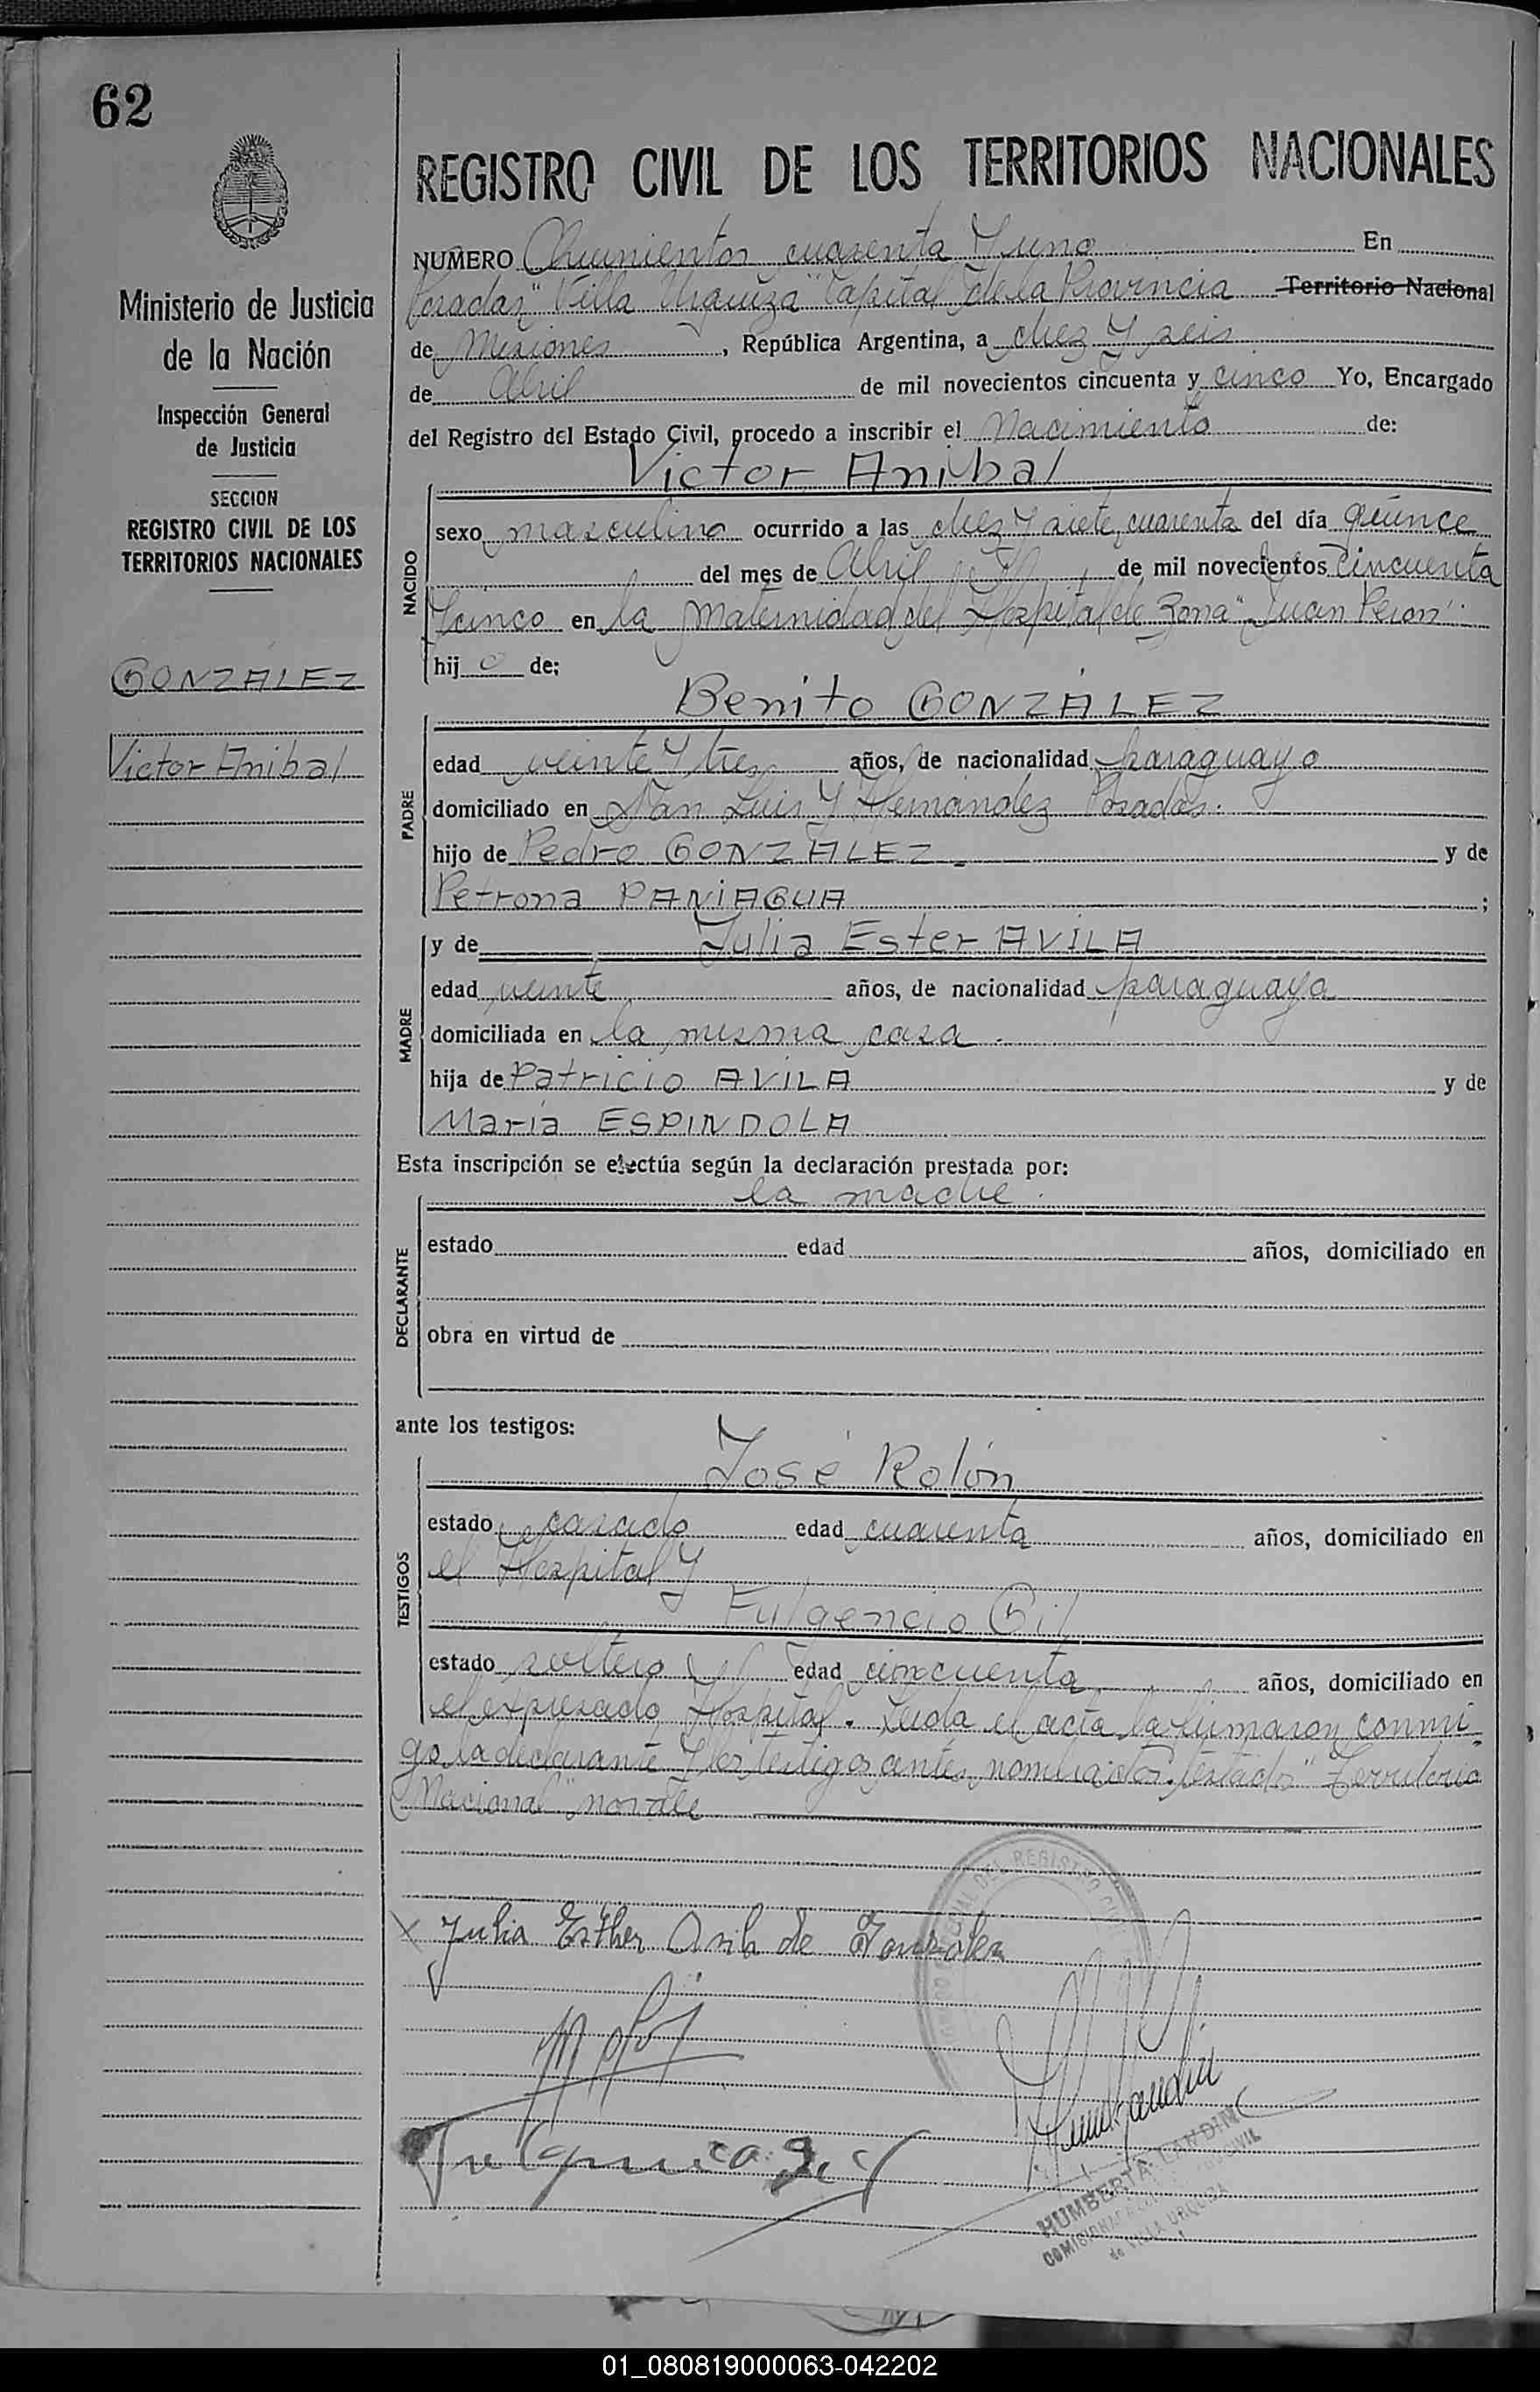 62
Ministerio de Justicia
de la Nación
Inspección General
de Justicia
SECCION
REGISTRO CIVIL DE LOS
TERRITORIOS NACIONALES
GONZALEZ
Victor Anibal
REGISTRO CIVIL DE LOS TERRITORIOS NACIONALES
NUMERO cuarenta y uno En
Posadas "Villa Urquiza" Capital de la Provincia Territorio Nacional
de Misiones, República Argentina, a diez y seis
de Abril de mil novecientos cincuenta y cinco Yo, Encargado
del Registro del Estado Civil, procedo a inscribir el Nacimiento de:
Victor Anibal
NACIDO
sexo masculino ocurrido a las diez y siete, cuarenta del día quince
del mes de Abril de mil novecientos cincuenta
y cinco en la Maternidad del Hospital de Zona "Juan Peron".
hijo de:
PADRE
Benito GONZÁLEZ
edad veinte y tres años, de nacionalidad paraguayo
domiciliado en San Luis y Hernandez Posadas.
hijo de Pedro GONZALEZ y de
Petrona PANiAGUA ;
MADRE
y de Julia Ester AVILA
edad veinte años, de nacionalidad paraguaya
domiciliada en la misma casa.
hija de Patricio AVILA y de
María ESPINDOLA
Esta inscripción se efectúa según la declaración prestada por:
DECLARANTE
la madre.
estado edad años, domiciliado en
obra en virtud de
ante los testigos:
TESTIGOS
José Rolón
estado casado edad cuarenta años, domiciliado en
el Hospital y
Fulgencio Gil
estado soltero edad cincuenta años, domiciliado en
el expresado Hospital. Leida el acta la firmaron conmi-
go la declarante y los testigos antes nombrados. testado "Territorio
Nacional" no vale
DEL REGISTRO
x Julia Esther Avila de Gonzalez
Fulgencio Gil
HUMBERTA LANDINI
de VILLA URQUIZA
01_080819000063-042202